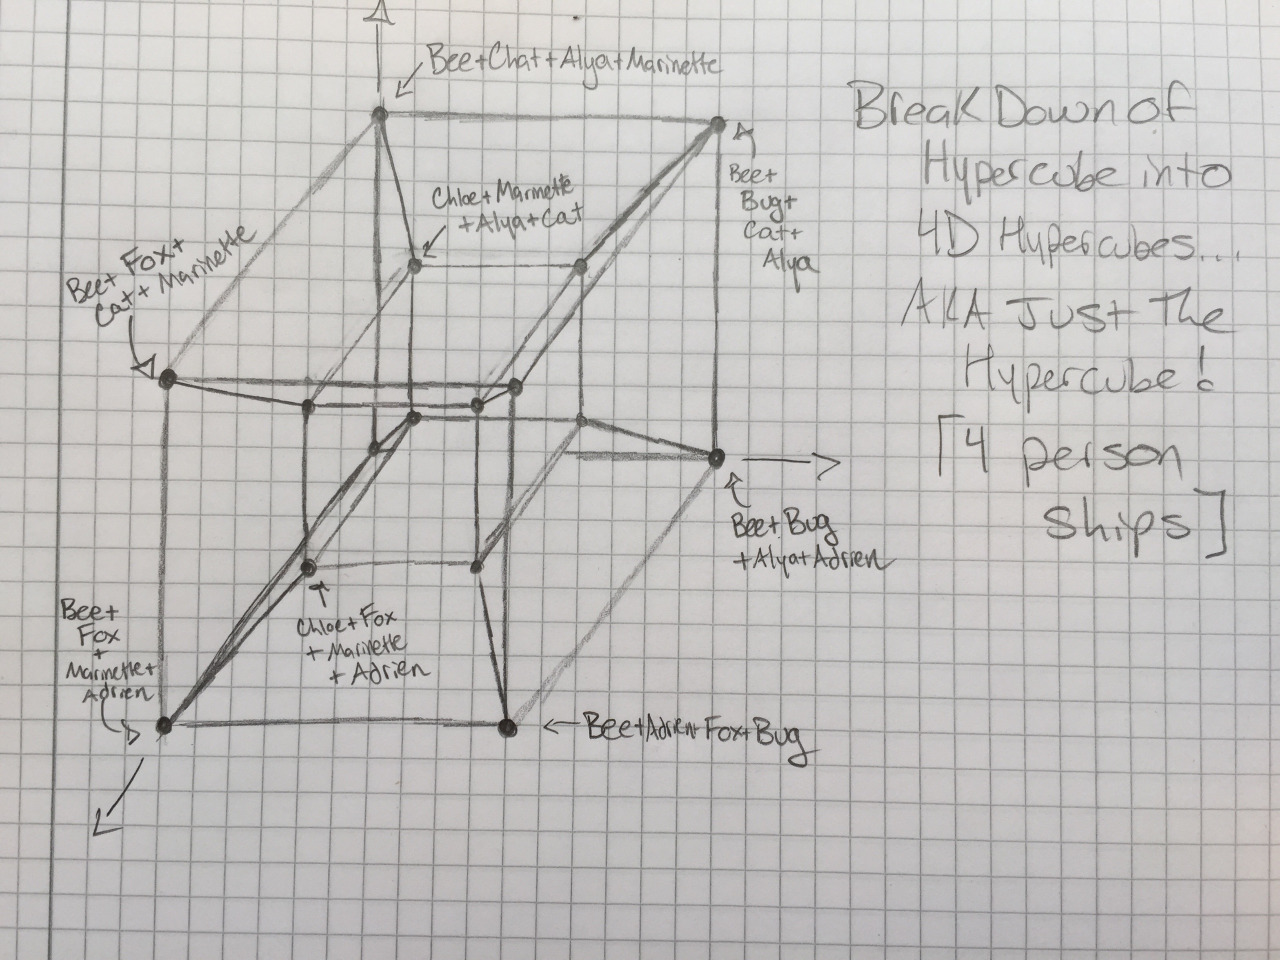 Bee+Chat+Alya+Marinette
Break Down of
Hypercube into
4D Hypercubes...
AKA Just the
Hypercube!
[4 person
ships]
Bee+
Bug+
Cat+
Alya
Chloe+Marinette
+Alya+Cat
Bee+ Fox+
Cat+ Marinette
Bee+Bug
+Alya+Adrien
Bee+
Fox
+
Marinette+
Adrien
Chloe+Fox
+Marinette
+ Adrien
Bee+Adrien+Fox+Bug